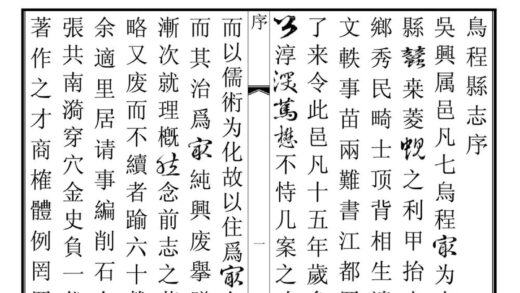 鳥程縣志序
吳興属邑凡七烏程㝡为
縣蠶桒菱蜆之利甲抬
鄉秀民畸士顶背相生
文軼事苗兩難書江都
了来令此邑凡十五年歲
公淳深篤懋不恃几案之
序
一
而以儒術为化故以住爲㝡
而其治爲㝡純興废擧
漸次就理概然念前志之
略又废而不續者踰六十
余適里居请事編削石
張共南漪穿穴金史負一
著作之才商榷體例罔